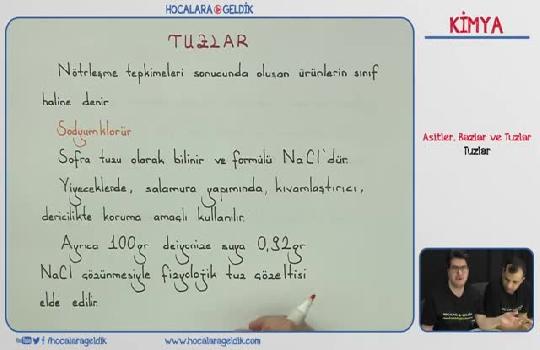 HOCALARA GELDİK
KİMYA
TUZLAR
Nötrleşme tepkimeleri sonucunda oluşan ürünlerin sınıf
haline denir.
Sodyumklorür
Sofra tuzu olarak bilinir ve formülü NaCl'dür.
Yiyeceklerde, salamura yapımında, kıvamlaştırıcı,
dericilikte koruma amaçlı kullanılır.
Ayrıca 100gr deiyonize suya 0,92gr
NaCl çözünmesiyle fizyolojik tuz çözeltisi
elde edilir.
Asitler, Bazlar ve Tuzlar
Tuzlar
/hocalarageldik
www.hocalarageldik.com